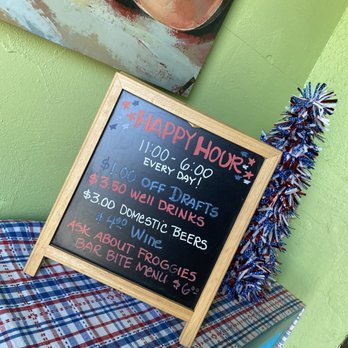 HAPPY HOUR
11:00 - 6:00
EVERY DAY!
$1.00 OFF DRAFTS
$3.50 Well DRINKS
$3.00 DOMESTIC BEERS
$4.00 Wine
ASK ABOUT FROGGIES
BAR BITE MENU $6.00